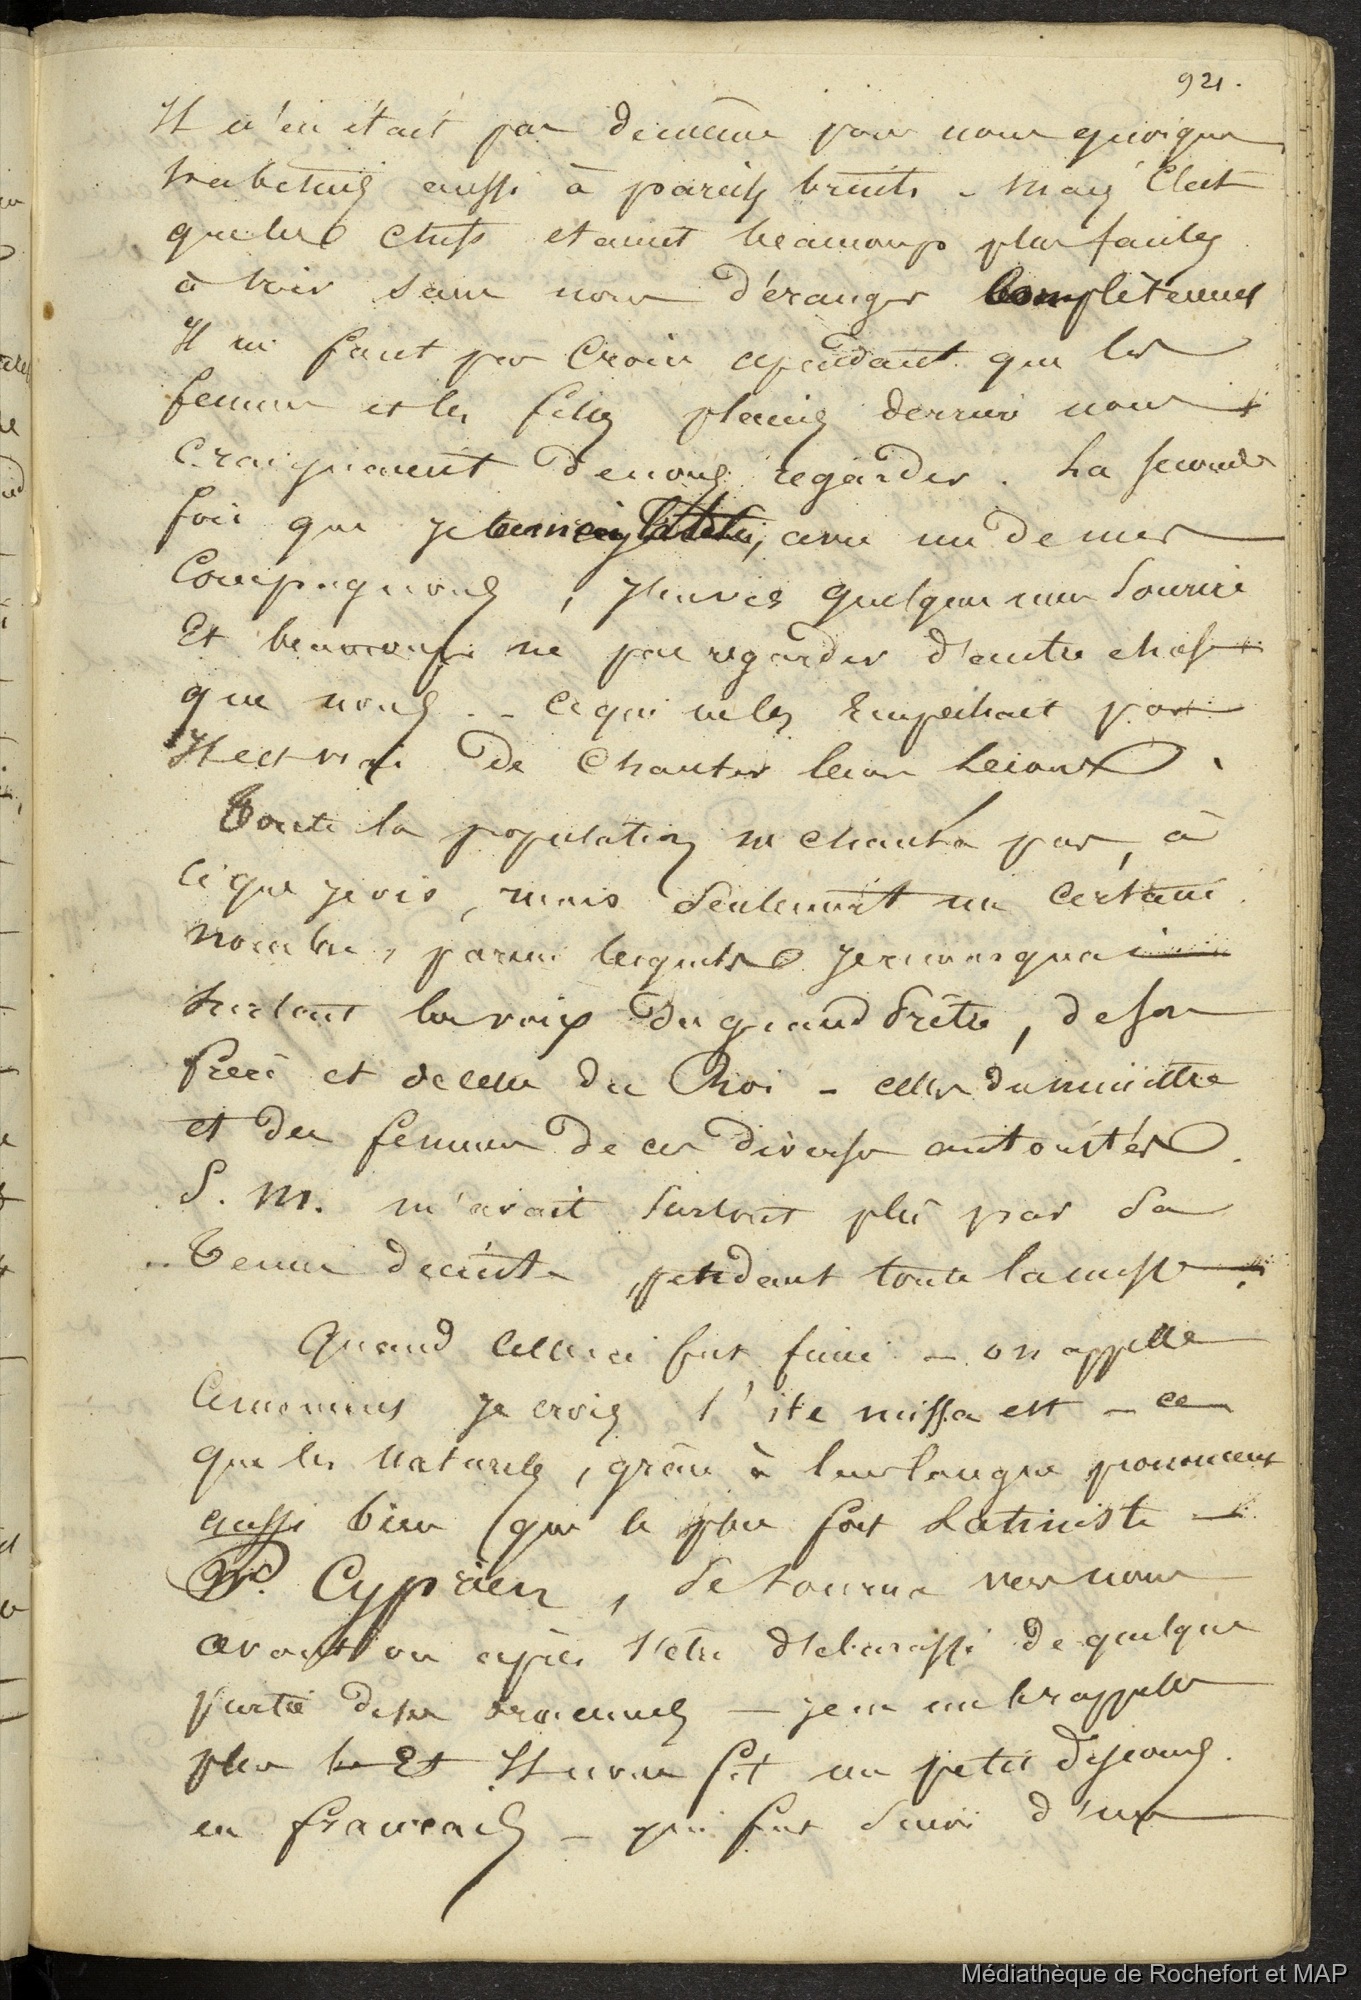 921.
Il n'en était pas demême pour nous quoique
habitués aussi à pareils bruits - mais C'est
que les chefs etaient beaucoup plus faciles
à voir sans nous déranger Complètement
Il ne faut pas Croire cependant que les
femmes et les filles placées derriere nous
Craignaient de nous regarder. La seconde
fois que je avec un de mes
Compagnons, J'en vis quelques unes Sourire
Et beaucoup ne pas regarder d'autre chose
que nous. - Ce qui ne les Empechait pas
Il est vrai de Chanter leurs Lecons.
Toute la population ne chanta pas, à
ce que je vis, mais Seulement un certain
nombre, parmi lesquels je remarquai
surtout la voix du grand Prêtre, de son
frere et de celle du Roi - celles du ministre
et des femmes de ces diverses autorités.
S. M. m'avait Surtout plû par Sa
Tenue decente pendant toute la messe.
Quand Celle ci fut finie - on appelle
Ce moment je crois l'ite missa est - ce
que les Naturels, grâce à leur langue prononcent
aussi bien que le plus fort Latiniste -
Pr. Cyprien, Se tourna vers nous
avant ou après s'etre debarassé de quelque
partie de ses ornements - je ne me le rappelle
plus Et Il nous fit un petit discours
en francais - qui fut Suivi d'un